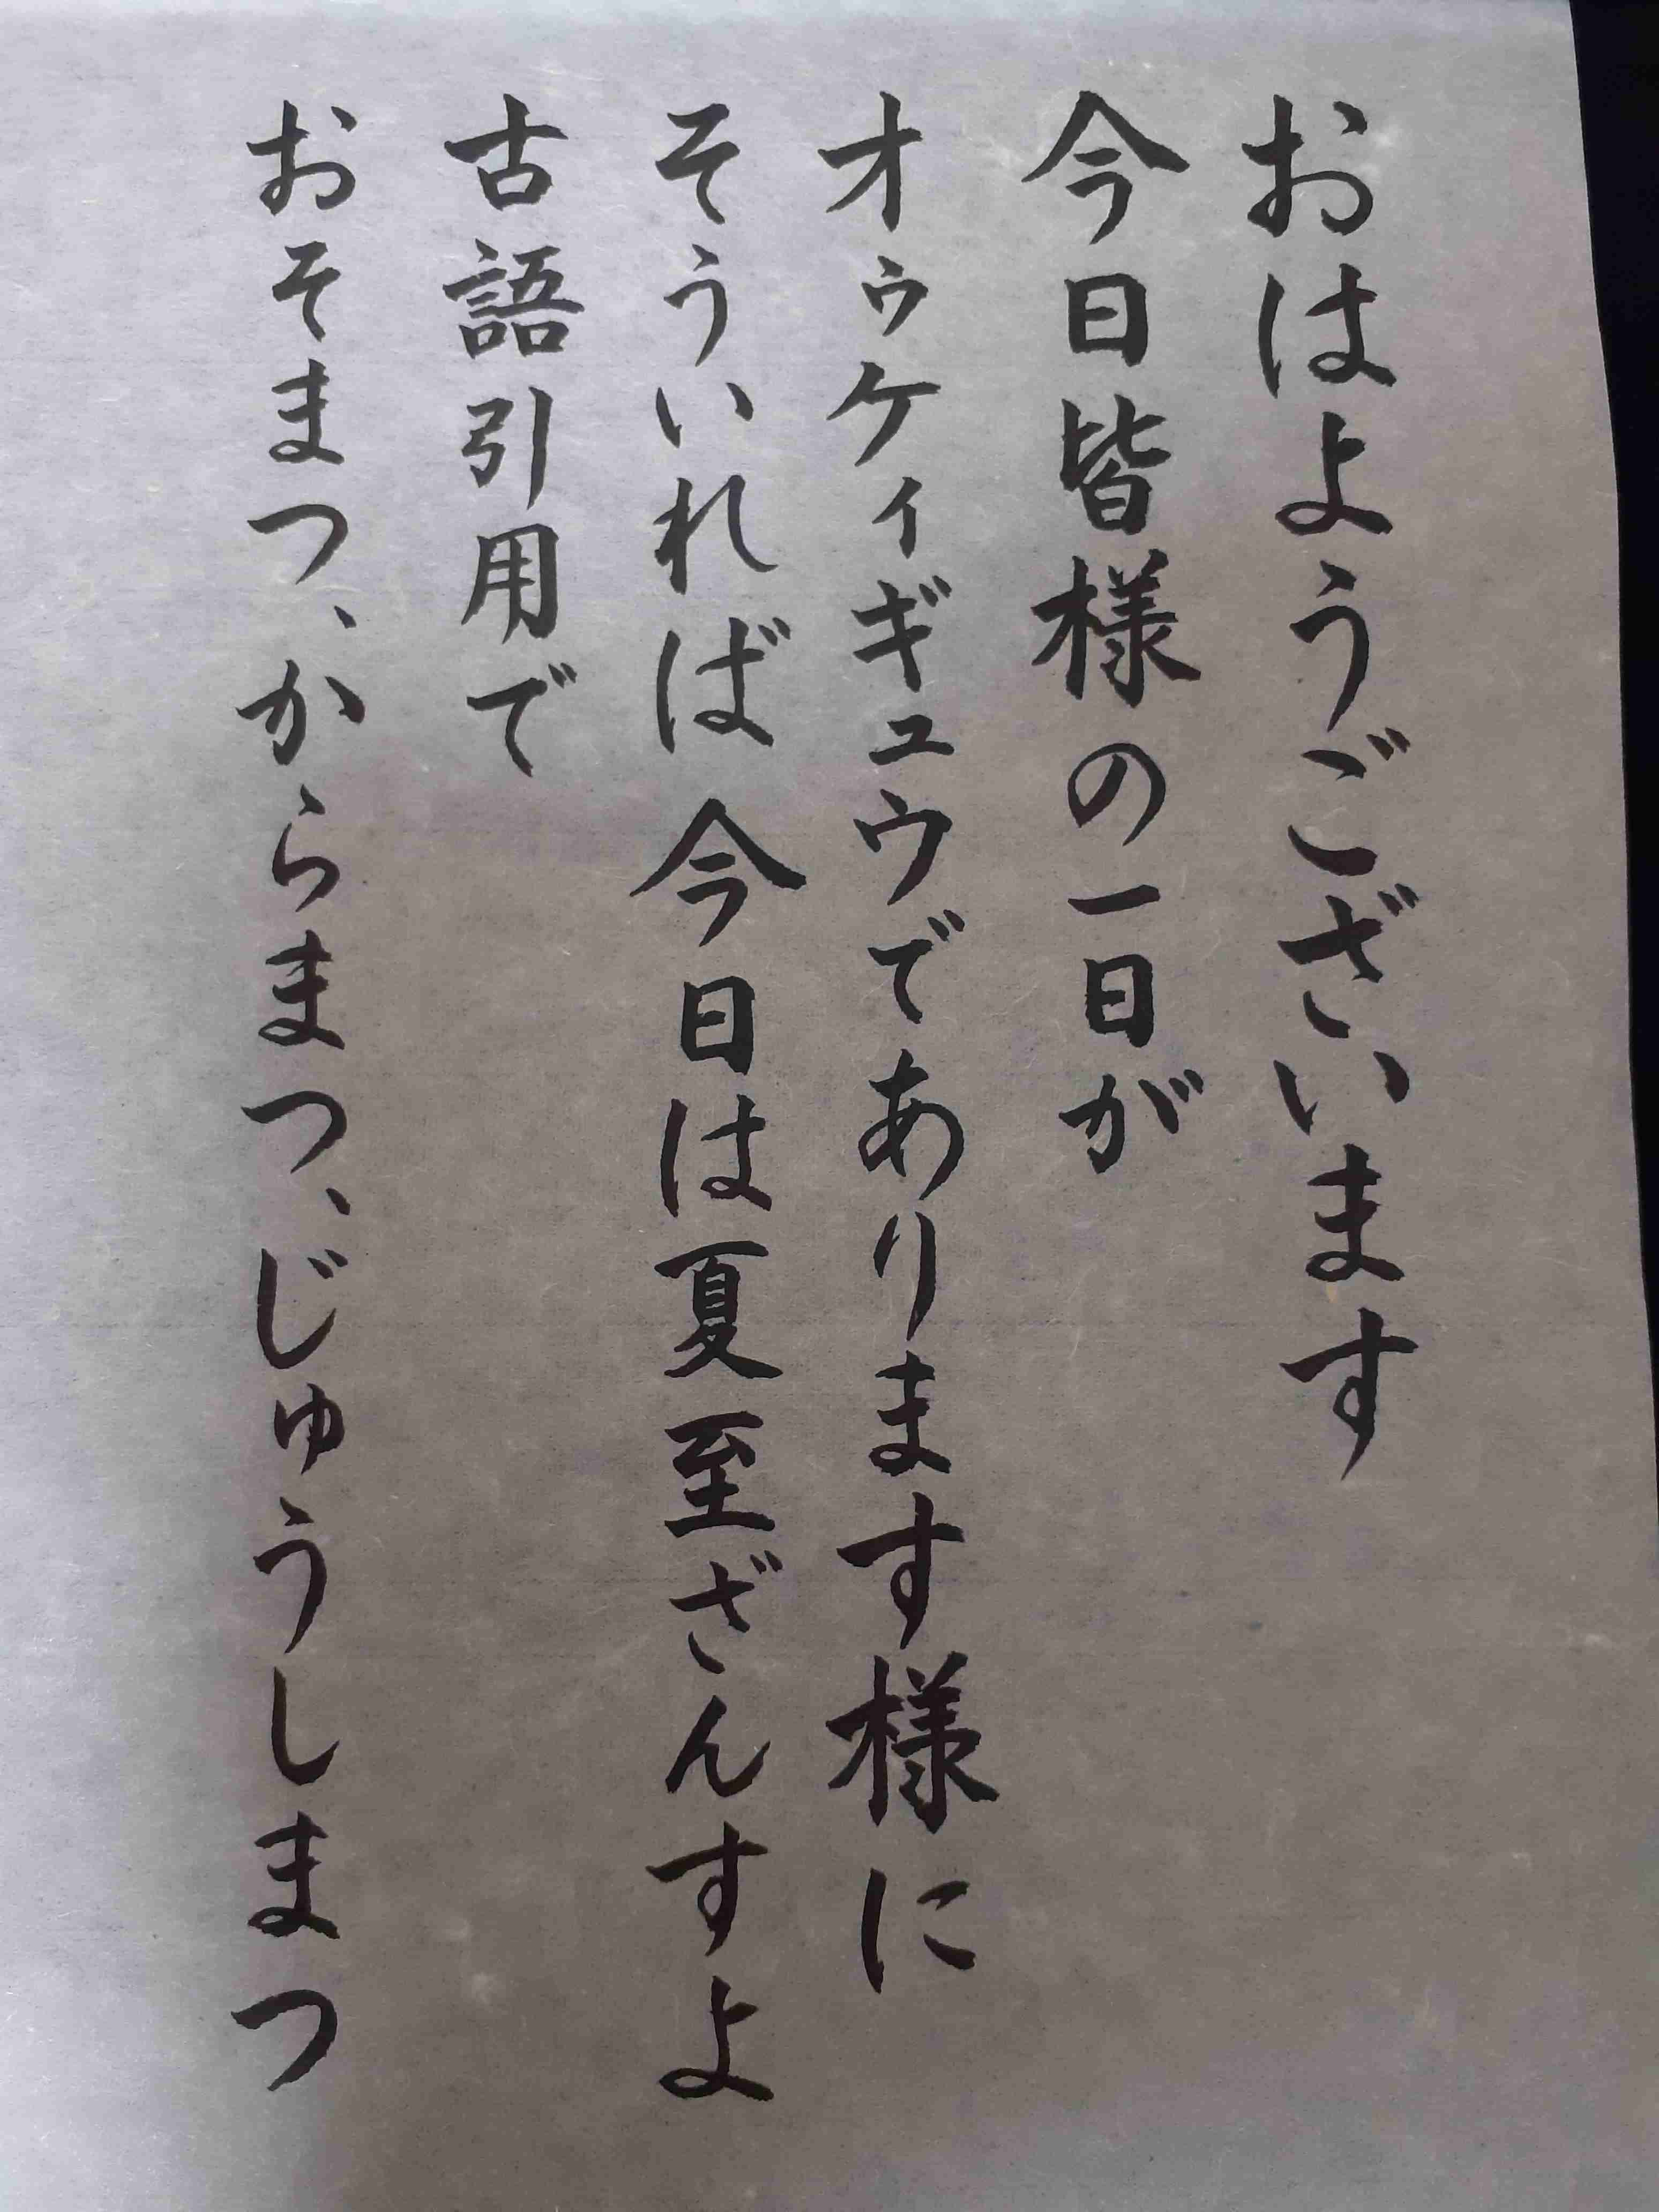 おはようございます
今日皆様の一日が
オゥケィギュウであります様に
そういれば今日は夏至ざんすよ
古語引用で
おそまつ、からまつ、じゅうしまつ